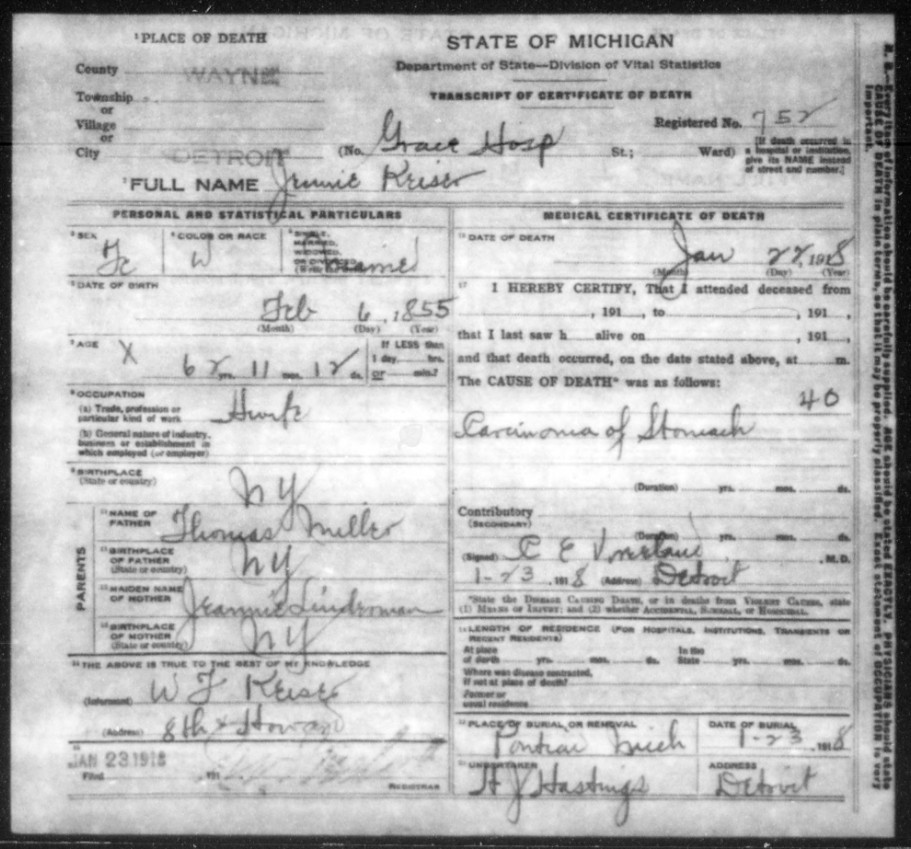 ¹PLACE OF DEATH
County WAYNE
Township
or
Village
or
City DETROIT
STATE OF MICHIGAN
Department of State—Division of Vital Statistics
TRANSCRIPT OF CERTIFICATE OF DEATH
Registered No. 752
(No. Grace Hosp St.; Ward)
[If death occurred in a hospital or institution, give its NAME instead of street and number.]
²FULL NAME Jennie Keiser
PERSONAL AND STATISTICAL PARTICULARS
³SEX Fe
⁴COLOR OR RACE W
⁵SINGLE, MARRIED, WIDOWED, OR DIVORCED married
⁶DATE OF BIRTH
Feb 6, 1855
(Month) (Day) (Year)
⁷AGE X
62 yrs. 11 mos. 12 ds.
If LESS than 1 day, hrs. or min.?
⁸OCCUPATION
(a) Trade, profession or particular kind of work Hwife
(b) General nature of industry, business or establishment in which employed (or employer)
⁹BIRTHPLACE
(State or country) NY
PARENTS
¹⁰NAME OF FATHER Thomas Miller
¹¹BIRTHPLACE OF FATHER (State or country) NY
¹²MAIDEN NAME OF MOTHER Jeannie Linderman
¹³BIRTHPLACE OF MOTHER (State or country) NY
¹⁴THE ABOVE IS TRUE TO THE BEST OF MY KNOWLEDGE
(Informant) W F Keiser
(Address) 8th & Howard
¹⁵
JAN 23 1918
Filed , 191
REGISTRAR
MEDICAL CERTIFICATE OF DEATH
¹⁶DATE OF DEATH
Jan 22, 1918
(Month) (Day) (Year)
¹⁷ I HEREBY CERTIFY, That I attended deceased from
, 191 , to , 191 ,
that I last saw h alive on , 191 ,
and that death occurred, on the date stated above, at m.
The CAUSE OF DEATH* was as follows:
40
Carcinoma of Stomach
(Duration) yrs. mos. ds.
Contributory
(SECONDARY)
(Duration) yrs. mos. ds.
(Signed) C E , M.D.
1-23, 1918 (Address) Detroit
*State the DISEASE CAUSING DEATH, or in deaths from VIOLENT CAUSES, state (1) MEANS OF INJURY; and (2) whether ACCIDENTAL, SUICIDAL, or HOMICIDAL.
¹⁸LENGTH OF RESIDENCE (FOR HOSPITALS, INSTITUTIONS, TRANSIENTS OR RECENT RESIDENTS)
At place of death yrs. mos. ds. In the State yrs. mos. ds.
Where was disease contracted, if not at place of death?
Former or usual residence
¹⁹PLACE OF BURIAL OR REMOVAL Pontiac Mich
DATE OF BURIAL 1-23 1918
²⁰UNDERTAKER H J Hastings
ADDRESS Detroit
N. B.—Every item of information should be carefully supplied. AGE should be stated EXACTLY. PHYSICIANS should state
CAUSE OF DEATH in plain terms, so that it may be properly classified. Exact statement of OCCUPATION is very
important.